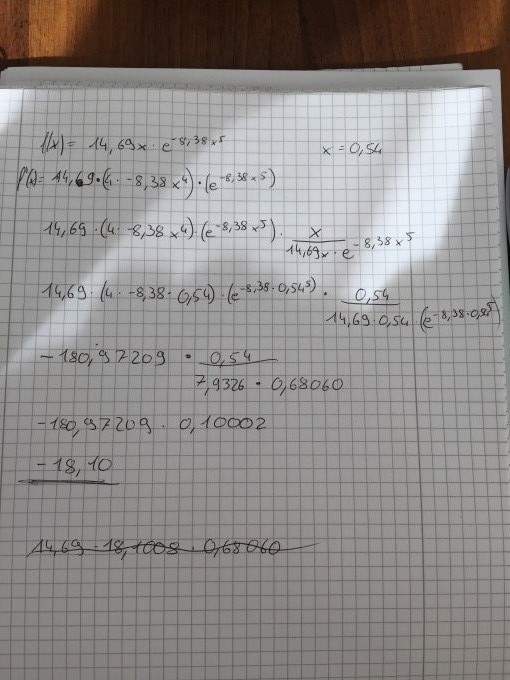 f(x) = 14,69x · e^-8,38x^5    x = 0,54
f'(x) = 14,69 · (4 · -8,38x^4) · (e^-8,38x^5)
14,69 · (4 · -8,38x^4) · (e^-8,38x^5) · x / 14,69x · e^-8,38x^5
14,69 · (4 · -8,38 · 0,54) · (e^-8,38 · 0,54^5) · 0,54 / 14,69 · 0,54 · (e^-8,38 · 0,54^5)
-180,97209 · 0,54 / 7,9326 · 0,68060
-180,97209 · 0,10002
-18,10
14,69 · 18,1008 · 0,68060